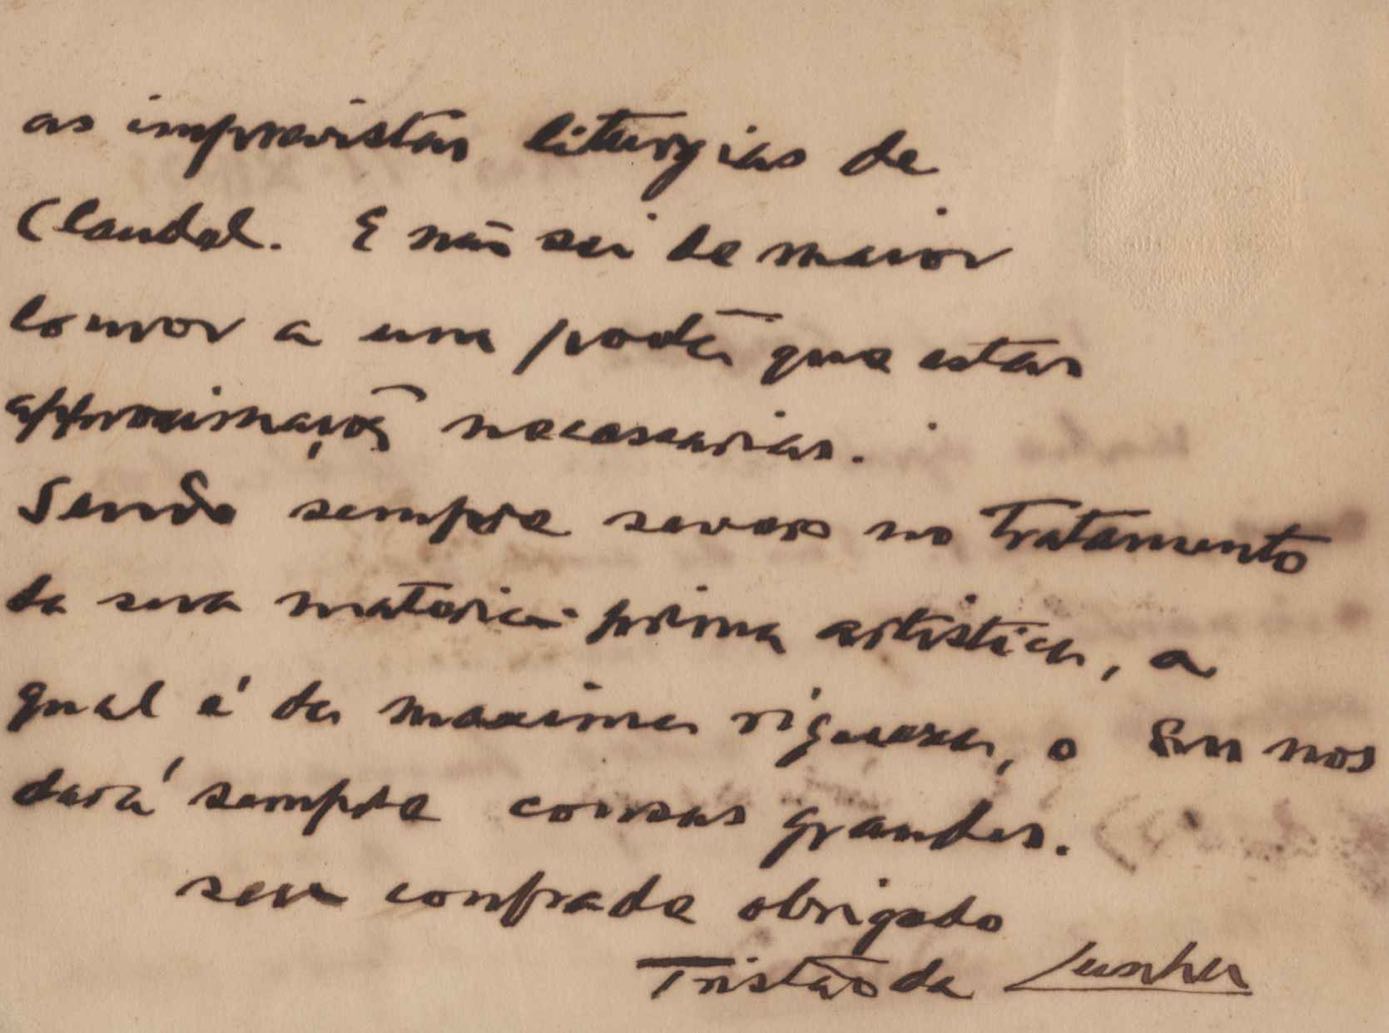 as imprevistas liturgias de
Claudel. E não sei de maior
louvor a um poeta que estas
approximações necessarias.
Sendo sempre severo no tratamento
da sua materia prima artistica, a
qual é da maxima riqueza, o Snr nos
dará sempre cousas grandes.
seu confrade obrigado
Tristão da Cunha